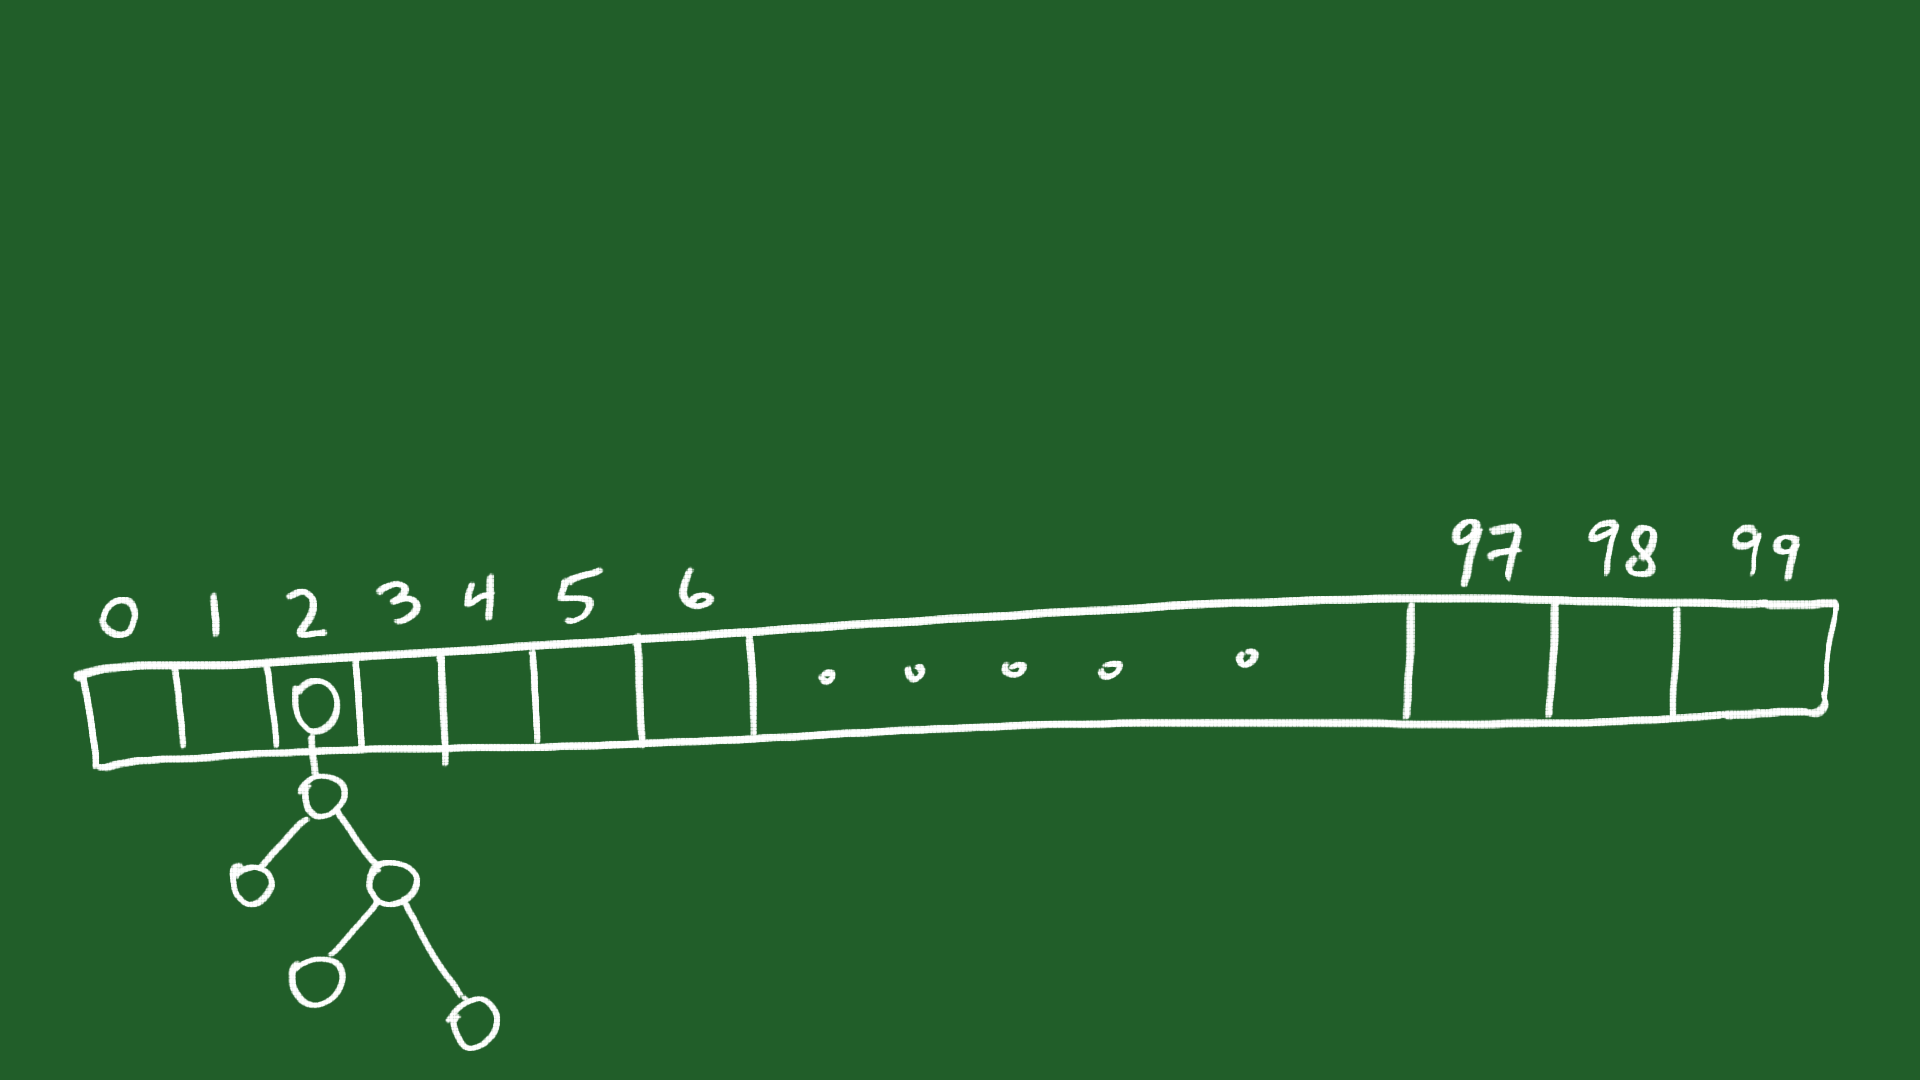 0 1 2 3 4 5 6 97 98 99